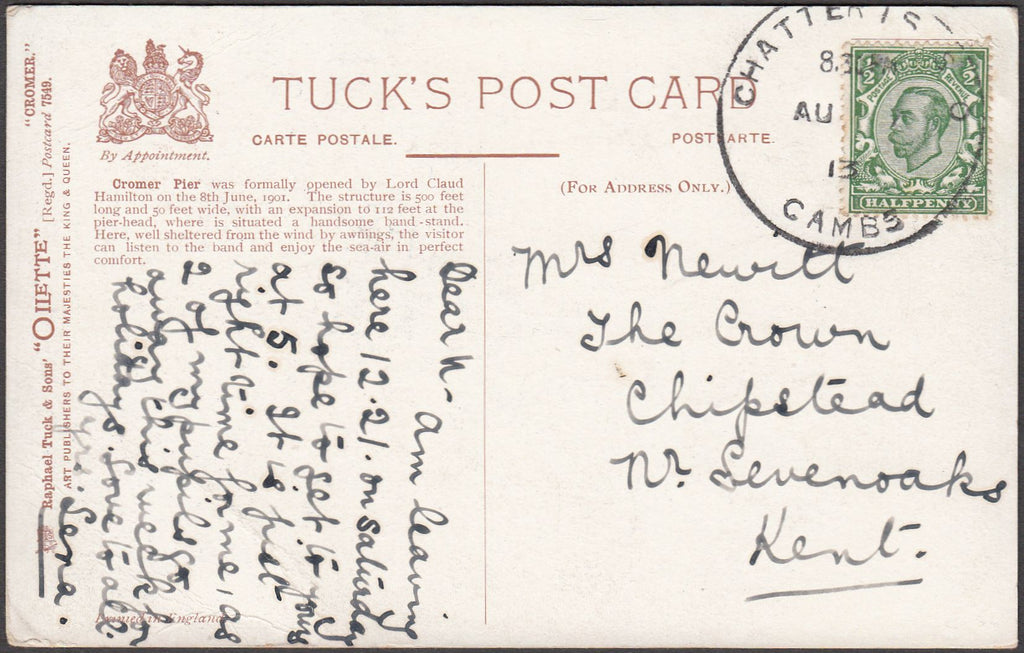 "CROMER."
Raphael Tuck & Sons' "OILETTE" [Regd.] Postcard 7549.
ART PUBLISHERS TO THEIR MAJESTIES THE KING & QUEEN.
By Appointment.
TUCK'S POST CARD
CARTE POSTALE.
POSTKARTE.
(FOR ADDRESS ONLY.)
Cromer Pier was formally opened by Lord Claud
Hamilton on the 8th June, 1901. The structure is 500 feet
long and 50 feet wide, with an expansion to 112 feet at the
pier-head, where is situated a handsome band-stand.
Here, well sheltered from the wind by awnings, the visitor
can listen to the band and enjoy the sea-air in perfect
comfort.
CHATTERIS
8.3
AU
13
CAMBS
POSTAGE
REVENUE
HALFPENNY
Dear M- am leaving
here 12.21. on saturday
so hope to get to yours
at 5. It is just
right time for me, as
2 of my pupils go
away this week for
holidays. Love to all.
Lena.
Mrs Newitt
The Crown
Chipstead
Nr. Sevenoaks
Kent.
Printed in England